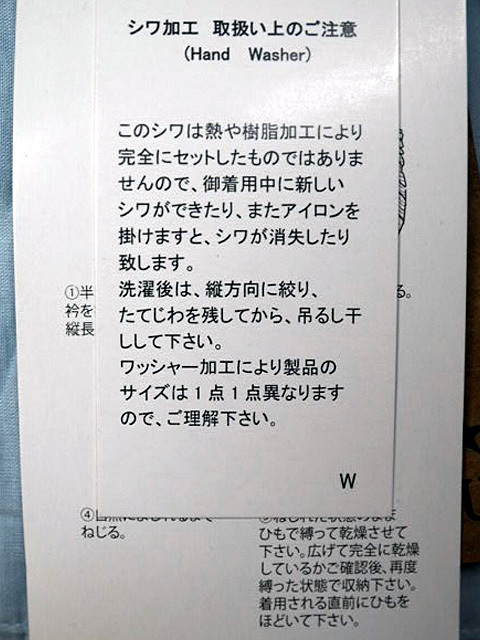 シワ加工 取扱い上のご注意
(Hand Washer)
このシワは熱や樹脂加工により
完全にセットしたものではありま
せんので、御着用中に新しい
シワができたり、またアイロンを
掛けますと、シワが消失したり
致します。
洗濯後は、縦方向に絞り、
たてじわを残してから、吊るし干
しして下さい。
ワッシャー加工により製品の
サイズは1点1点異なります
ので、ご理解下さい。
W
①半
衿を
縦長
る。
④
ねじる。
ひもで縛って乾燥させて
下さい。広げて完全に乾燥
しているかご確認後、再度
縛った状態で収納下さい。
着用される直前にひもを
ほどいて下さい。